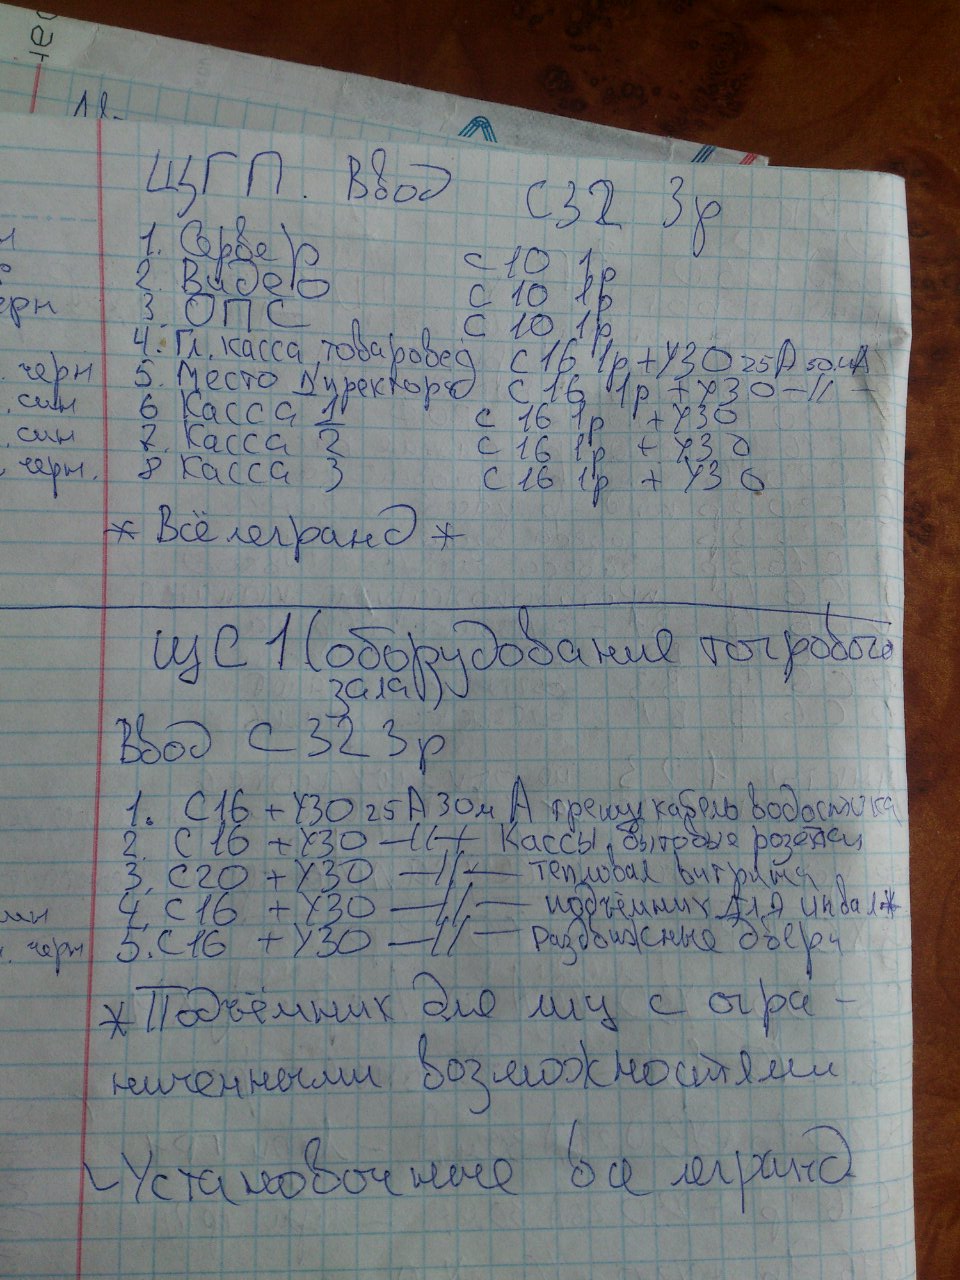 ЩГП. Ввод С32 3р
1. Сервер С 10 1р
2. Видео С 10 1р
3. ОПС С 10 1р
4. Гл. касса товаровед С 16 1р + УЗО 25А 50мА
5. Место Директора С 16 1р + УЗО -//-
6 Касса 1 С 16 1р + УЗО
7. Касса 2 С 16 1р + УЗО
8 Касса 3 С 16 1р + УЗО
* Всё легранд *
ЩС 1 (оборудование
зала)
Ввод С 32 3р
1. С16 + УЗО 25 А 30м А кабель водостока
2. С 16 + УЗО -//- Кассы, бытовые розетки
3. С20 + УЗО -//- тепловая витрина
4. С16 + УЗО -//- подъёмник для инвал
5. С16 + УЗО -//- Раздвижные двери
* Подъёмник для лиц с огра-
ниченными возможностями
Установочные все легранд
черн
. син
. син
. черн.
. черн